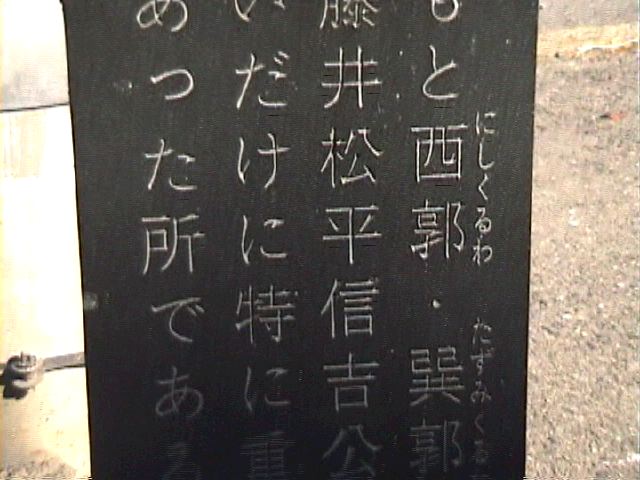 もと西郭・巽郭
にしくるわ
たつみくる
藤井松平信吉公
いだけに特に重
あった所である